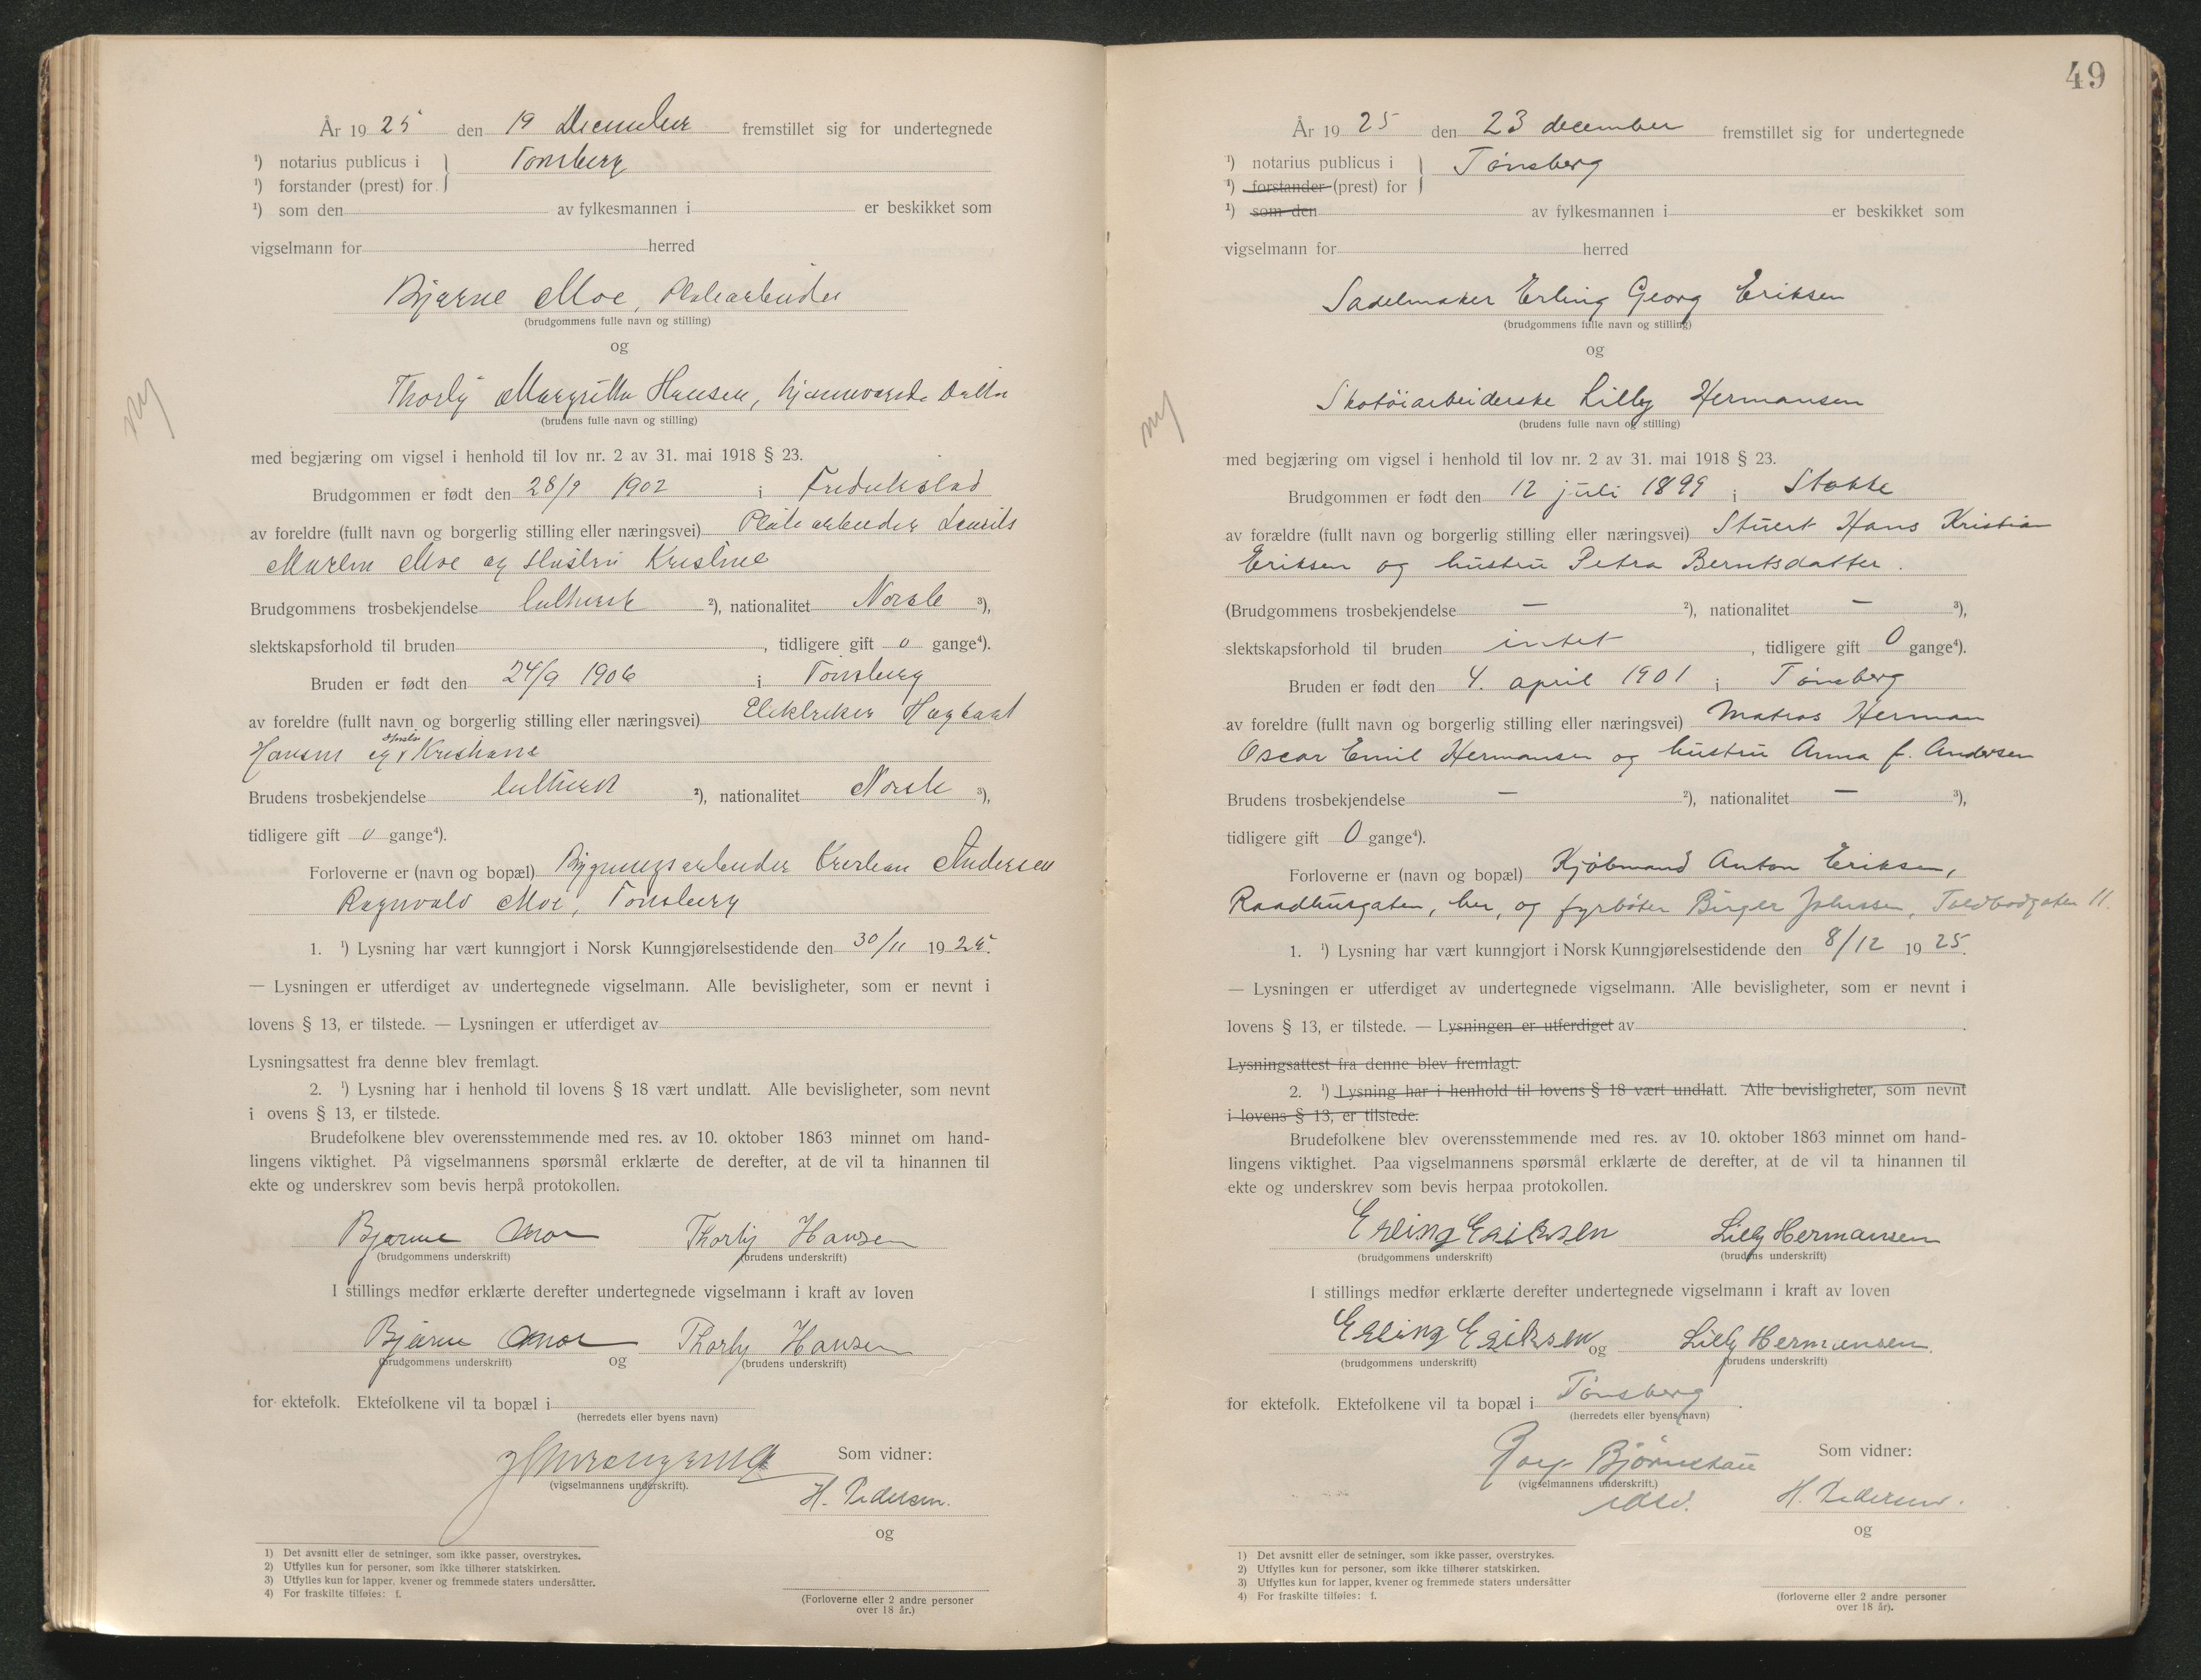 År 19 25 den 19 December fremstillet sig for undertegnede
¹) notarius publicus i } Tønsberg
¹) forstander (prest) for
¹) som den av fylkesmannen i er beskikket som
vigselmann for herred
Bjarne Moe, Platearbeider
(brudgommens fulle navn og stilling)
og
Thorly Margritha Hansen, hjemmeværende Datter
(brudens fulle navn og stilling)
med begjæring om vigsel i henhold til lov nr. 2 av 31. mai 1918 § 23.
Brudgommen er født den 28/9 1902 i Fredrikstad
av foreldre (fullt navn og borgerlig stilling eller næringsvei) Platearbeider
Moe og Hustru Kristine
Brudgommens trosbekjendelse luthersk ²), nationalitet Norsk ³),
slektskapsforhold til bruden , tidligere gift 0 gange⁴).
Bruden er født den 24/9 1906 i Tønsberg
av foreldre (fullt navn og borgerlig stilling eller næringsvei) Elektriker Hagbart
Hansen og Hustru Kristiane
Brudens trosbekjendelse luthersk ²), nationalitet Norsk ³),
tidligere gift 0 gange⁴).
Forloverne er (navn og bopæl) Bygningsarbeider Kristian Andersen
Ragnvald Moe, Tønsberg
1. ¹) Lysning har vært kunngjort i Norsk Kunngjørelsestidende den 30/11 19 25.
— Lysningen er utferdiget av undertegnede vigselmann. Alle bevisligheter, som er nevnt i
lovens § 13, er tilstede. — Lysningen er utferdiget av
Lysningsattest fra denne blev fremlagt.
2. ¹) Lysning har i henhold til lovens § 18 vært undlatt. Alle bevisligheter, som nevnt
i ovens § 13, er tilstede.
Brudefolkene blev overensstemmende med res. av 10. oktober 1863 minnet om hand-
lingens viktighet. På vigselmannens spørsmål erklærte de derefter, at de vil ta hinannen til
ekte og underskrev som bevis herpå protokollen.
Bjarne Moe Thorly Hansen
(brudgommens underskrift) (brudens underskrift)
I stillings medfør erklærte derefter undertegnede vigselmann i kraft av loven
Bjarne Moe og Thorly Hansen
(brudgommens underskrift) (brudens underskrift)
for ektefolk. Ektefolkene vil ta bopæl i
(herredets eller byens navn)
Som vidner:
(vigselmannens underskrift).
H. Pedersen.
og
1) Det avsnitt eller de setninger, som ikke passer, overstrykes.
2) Utfylles kun for personer, som ikke tilhører statskirken.
3) Utfylles kun for lapper, kvener og fremmede staters undersåtter.
4) For fraskilte tilføies: f.
(Forloverne eller 2 andre personer
over 18 år.)
49
År 19 25 den 23 december fremstillet sig for undertegnede
¹) notarius publicus i } Tønsberg
¹) forstander (prest) for
¹) som den av fylkesmannen i er beskikket som
vigselmann for herred
Sadelmaker Erling Georg Eriksen
(brudgommens fulle navn og stilling)
og
Skotøiarbeiderske Lilly Hermansen
(brudens fulle navn og stilling)
med begjæring om vigsel i henhold til lov nr. 2 av 31. mai 1918 § 23.
Brudgommen er født den 12 juli 1899 i Stokke
av forældre (fullt navn og borgerlig stilling eller næringsvei) Stuert Hans Kristian
Eriksen og hustru Petra Berntsdatter.
(Brudgommens trosbekjendelse — ²), nationalitet — ³),
slektskapsforhold til bruden intet , tidligere gift 0 gange⁴).
Bruden er født den 4. april 1901 i Tønsberg
av foreldre (fullt navn og borgerlig stilling eller næringsvei) Matros Herman
Oscar Emil Hermansen og hustru Anna f. Andersen
Brudens trosbekjendelse — ²), nationalitet — ³),
tidligere gift 0 gange⁴).
Forloverne er (navn og bopæl) Kjøbmand Anton Eriksen,
Raadhusgaten, her, og fyrbøter Birger Johnsen, Toldbodgaten 11.
1. ¹) Lysning har vært kunngjort i Norsk Kunngjørelsestidende den 8/12 19 25.
— Lysningen er utferdiget av undertegnede vigselmann. Alle bevisligheter, som er nevnt i
lovens § 13, er tilstede. — Lysningen er utferdiget av
Lysningsattest fra denne blev fremlagt.
2. ¹) Lysning har i henhold til lovens § 18 vært undlatt. Alle bevisligheter, som nevnt
i lovens § 13, er tilstede.
Brudefolkene blev overensstemmende med res. av 10. oktober 1863 minnet om hand-
lingens viktighet. Paa vigselmannens spørsmål erklærte de derefter, at de vil ta hinannen til
ekte og underskrev som bevis herpaa protokollen.
Erling Eriksen Lilly Hermansen
(brudgommens underskrift) (brudens underskrift)
I stillings medfør erklærte derefter undertegnede vigselmann i kraft av loven
Erling Eriksen og Lilly Hermansen.
(brudgommens underskrift) (brudens underskrift)
for ektefolk. Ektefolkene vil ta bopæl i Tønsberg.
(herredets eller byens navn)
Som vidner:
(vigselmannens underskrift.)
H. Pedersen.
og
1) Det avsnitt eller de setninger, som ikke passer, overstrykes.
2) Utfylles kun for personer, som ikke tilhører statskirken.
3) Utfylles kun for lapper, kvener og fremmede staters undersåtter
4) For fraskilte tilføies: f.
(forloverne eller 2 andre personer
over 18 år).